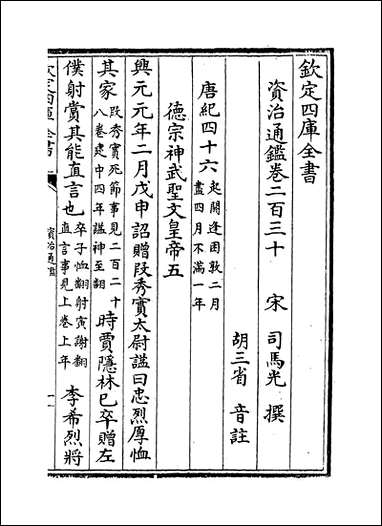 欽定四庫全書
資治通鑑卷二百三十 宋 司馬光 撰
胡三省 音註
唐紀四十六 起閼逢困敦二月盡四月不滿一年
德宗神武聖文皇帝五
興元元年二月戊申詔贈段秀實太尉諡曰忠烈厚恤
其家 段秀實死節事見二百二十八卷建中四年諡神至翻 時賈隱林已卒贈左
僕射賞其能直言也 卒子恤翻射寅謝翻直言事見上卷上年 李希烈將
資治通鑑